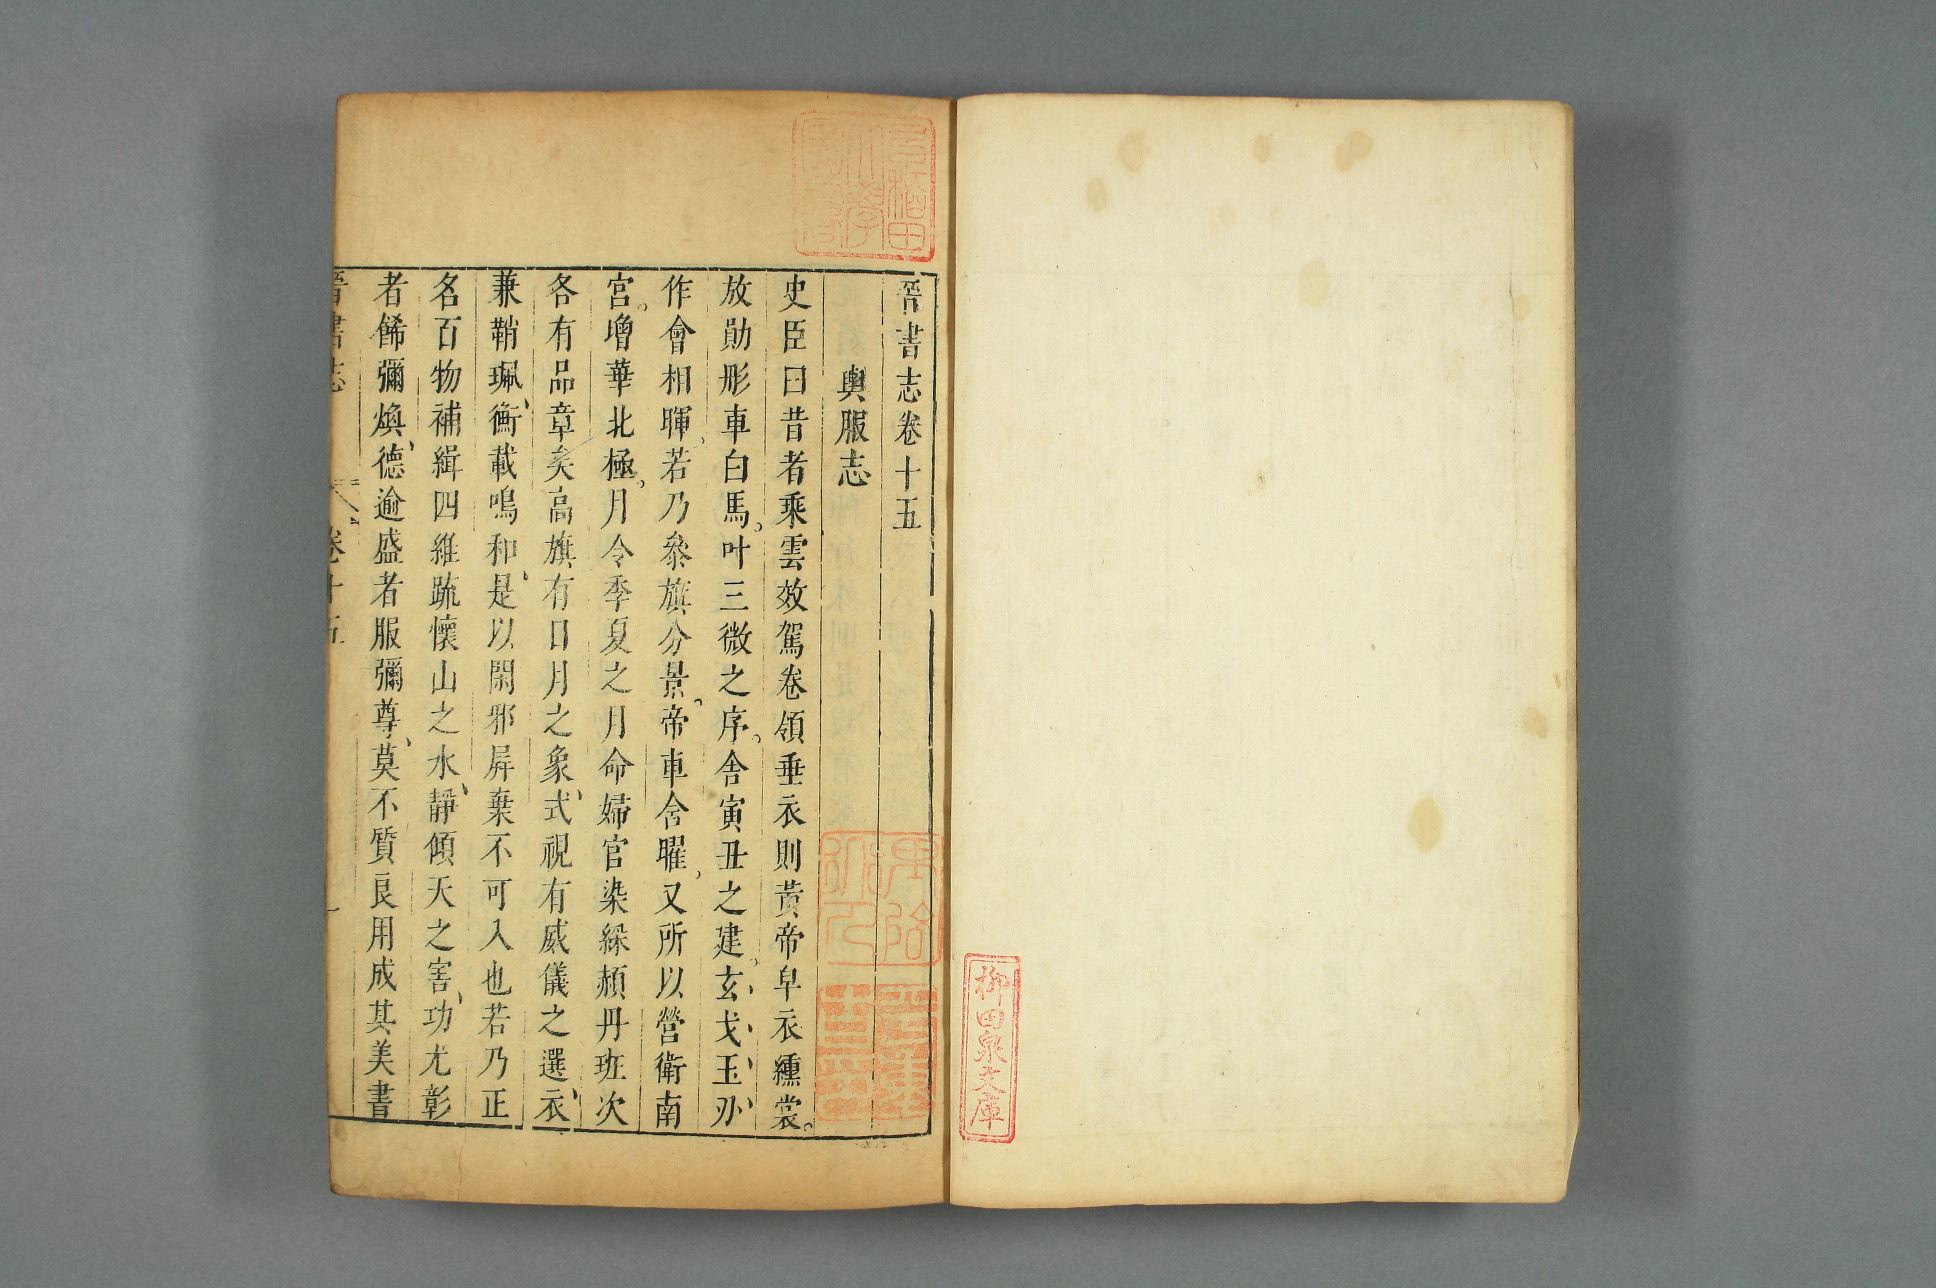 柳田泉文庫
晉書志卷十五
輿服志
史臣曰昔者乘雲效駕卷領垂衣則黃帝皁衣纁裳。
放勛彤車白馬。叶三微之序。舍寅丑之建。玄、戈、玉、刅、
作會相暉、若乃參旗分景。帝車含曜、又所以營衛南
宮。增華北極。月令季夏之月命婦官染綵赬丹班次
各有品章矣高旗有日月之象、式視有威儀之選、衣
兼鞘珮、衡載鳴和、是以閑邪屏棄不可入也若乃正
名百物補緝四維疏懷山之水、靜傾天之害、功尤彰
者飾彌煥、德逾盛者服彌尊、莫不質良用成其美書
晉書志
卷十五
一
早稻田
大學
圖書